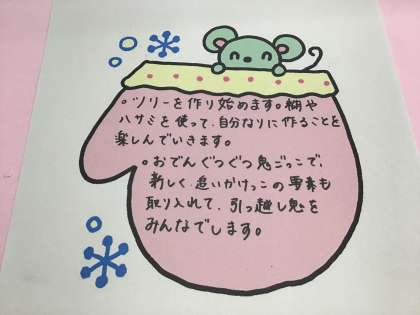 。ツリーを作り始めます。糊や
ハサミを使って、自分なりに作ることを
楽しんでいきます。
。おでんぐつぐつ鬼ごっこで、
新しく追いかけっこの要素も
取り入れて、引っ越し鬼を
みんなでします。